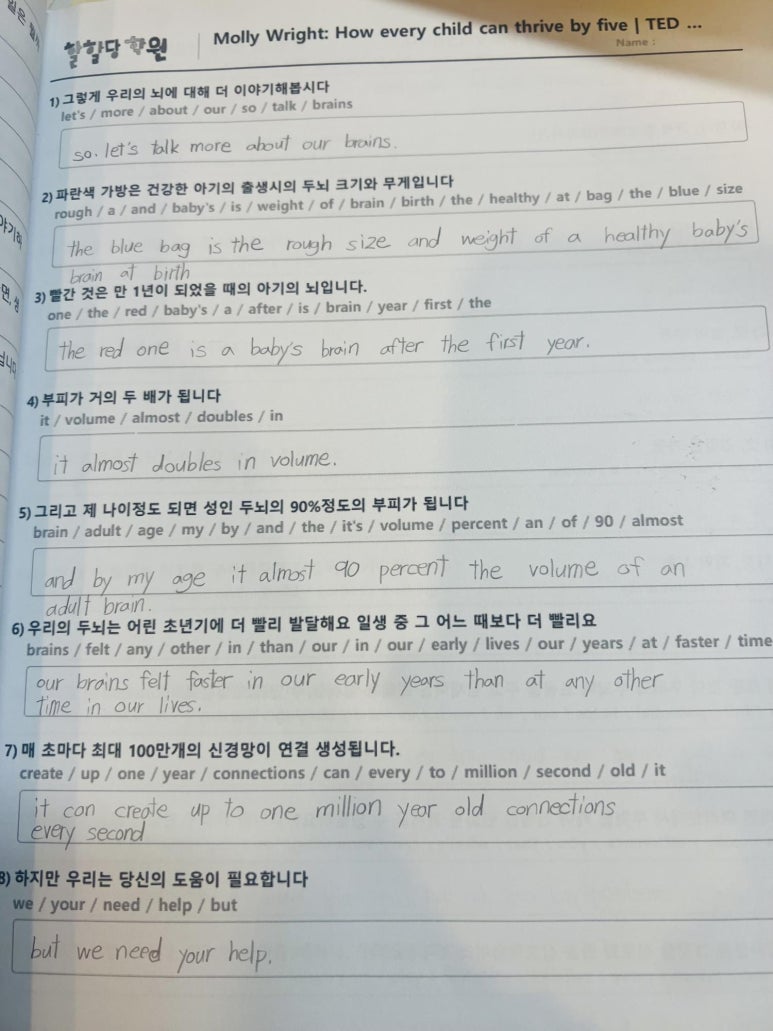 할할당 학원
Molly Wright: How every child can thrive by five | TED ...
Name :
1) 그렇게 우리의 뇌에 대해 더 이야기해봅시다
let's / more / about / our / so / talk / brains
so. let's talk more about our brains.
2) 파란색 가방은 건강한 아기의 출생시의 두뇌 크기와 무게입니다
rough / a / and / baby's / is / weight / of / brain / birth / the / healthy / at / bag / the / blue / size
the blue bag is the rough size and weight of a healthy baby's
brain at birth
3) 빨간 것은 만 1년이 되었을 때의 아기의 뇌입니다.
one / the / red / baby's / a / after / is / brain / year / first / the
the red one is a baby's brain after the first year.
4) 부피가 거의 두 배가 됩니다
it / volume / almost / doubles / in
it almost doubles in volume.
5) 그리고 제 나이정도 되면 성인 두뇌의 90%정도의 부피가 됩니다
brain / adult / age / my / by / and / the / it's / volume / percent / an / of / 90 / almost
and by my age it almost 90 percent the volume of an
adult brain.
6) 우리의 두뇌는 어린 초년기에 더 빨리 발달해요 일생 중 그 어느 때보다 더 빨리요
brains / felt / any / other / in / than / our / in / our / early / lives / our / years / at / faster / time
our brains felt faster in our early years than at any other
time in our lives.
7) 매 초마다 최대 100만개의 신경망이 연결 생성됩니다.
create / up / one / year / connections / can / every / to / million / second / old / it
it can create up to one million year old connections
every second
8) 하지만 우리는 당신의 도움이 필요합니다
we / your / need / help / but
but we need your help.